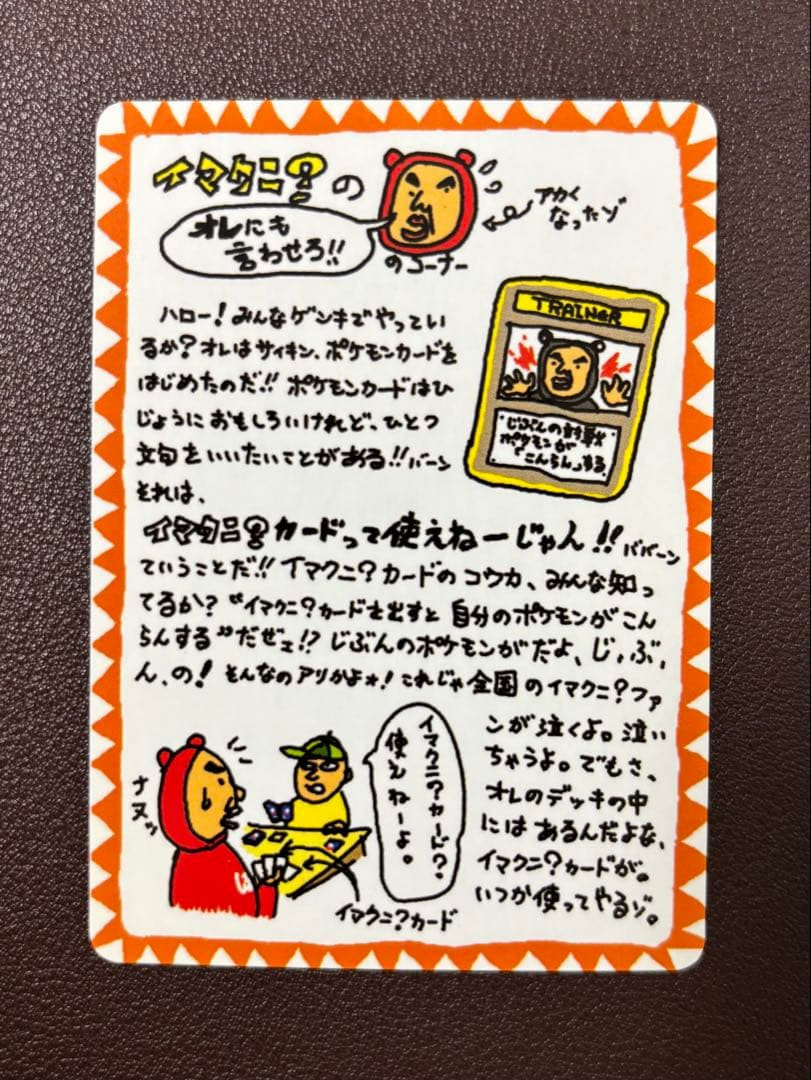 イマクニ?の
オレにも
言わせろ!!
のコーナー
アカく
なったゾ
TRAINER
じぶんの対戦
ポケモンが
「こんらん」する
ハロー!みんなゲンキでやってい
るか?オレはサイキン、ポケモンカードを
はじめたのだ!!ポケモンカードはひ
じょうにおもしろいけれど、ひとつ
文句をいいたいことがある!!バーン
それは、
イマクニ?カードって使えねーじゃん!!ババーン
ていうことだ!!イマクニ?カードのコウカ、みんな知っ
てるか?“イマクニ?カードを出すと自分のポケモンがこん
らんする”だぜェ!?じぶんのポケモンがだよ、じ,ぶ,
ん,の!そんなのアリかよォ!これじゃ全国のイマクニ?ファ
ンが泣くよ。泣い
ちゃうよ。でもさ、
オレのデッキの中
にはあるんだよな、
イマクニ?カードが。
いつか使ってやるゾ。
ナヌッ
イマクニ?カード?
使えねーよ。
イマクニ?カード